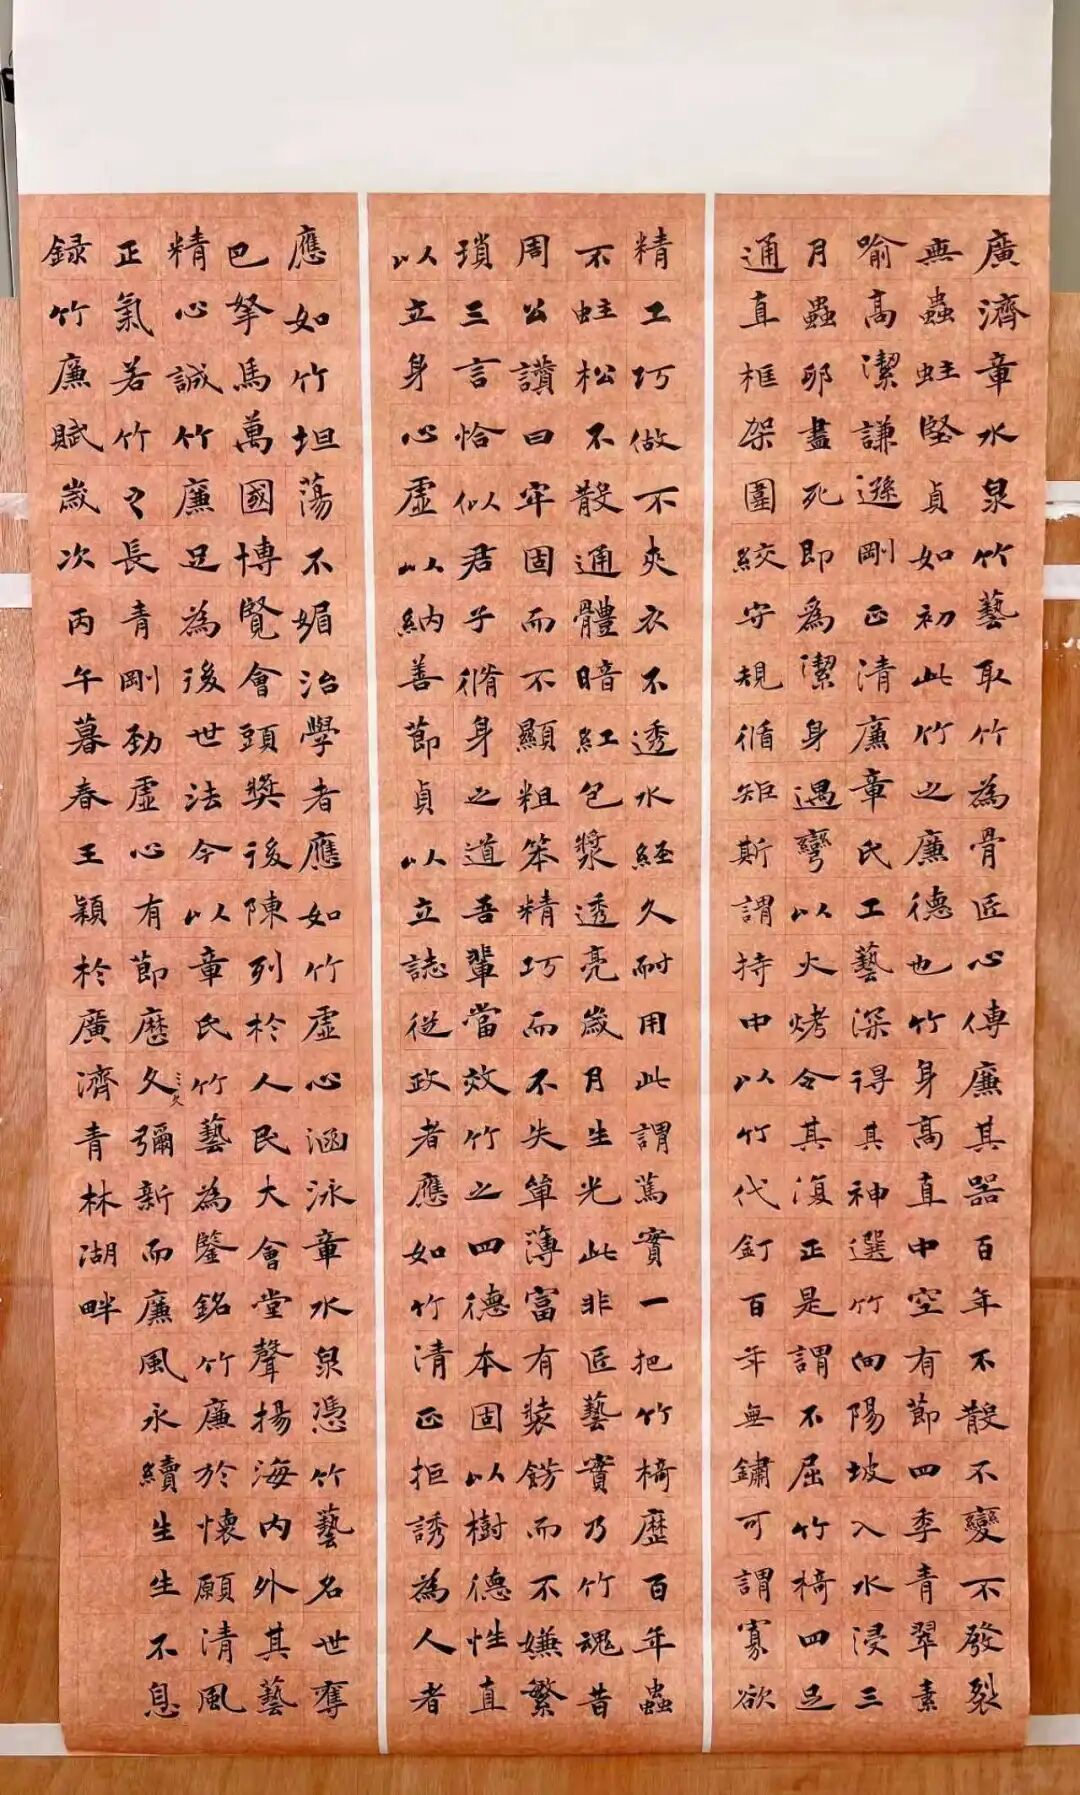 廣濟章水泉竹藝取竹為骨匠心傳廉其器百年不散不變不發裂
無蟲蛀堅貞如初此竹之廉德也竹身高直中空有節四季青翠素
喻高潔謙遜剛正清廉章氏工藝深得其神選竹向陽坡入水浸三
月蟲卵盡死即為潔身遇彎以火烤令其復正是謂不屈竹椅四足
通直框架圍絞守規循矩斯謂持中以竹代釘百年無鏽可謂寡欲
精工巧做不夾衣不透水經久耐用此謂篤實一把竹椅歷百年蟲
不蛀松不散通體暗紅包漿透亮歲月生光此非匠藝實乃竹魂昔
周公讚曰牢固而不顯粗笨精巧而不失單薄富有裝飾而不嫌繁
瑣三言恰似君子脩身之道吾輩當效竹之四德本固以樹德性直
以立身心虛以納善節貞以立誌從政者應如竹清正拒誘為人者
應如竹坦蕩不媚治學者應如竹虛心涵泳章水泉憑竹藝名世奪
巴拏馬萬國博覽會頭獎後陳列於人民大會堂聲揚海內外其藝
精心誠竹廉足為後世法今以章氏竹藝為鑒銘竹廉於懷願清風
正氣若竹之長青剛勁虛心有節歷久彌新而廉風永續生生不息
録竹廉賦歲次丙午暮春王穎於廣濟青林湖畔